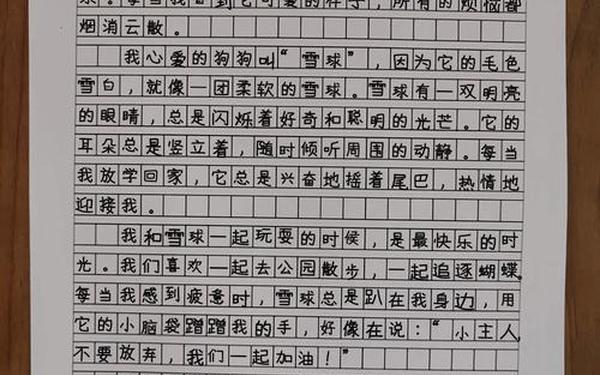 乐。每当我看到它可爱的样子，所有的烦恼都
烟消云散。
我心爱的狗狗叫“雪球”，因为它的毛色
雪白，就像一团柔软的雪球。雪球有一双明亮
的眼睛，总是闪烁着好奇和聪明的光芒。它的
耳朵总是竖立着，随时倾听周围的动静。每当
我放学回家，它总是兴奋地摇着尾巴，热情地
迎接我。
我和雪球一起玩耍的时候，是最快乐的时
光。我们喜欢一起去公园散步，一起追逐蝴蝶。
每当我感到疲惫时，雪球总是趴在我身边，用
它的小脑袋蹭蹭我的手，好像在说：“小主人，
不要放弃，我们一起加油！”